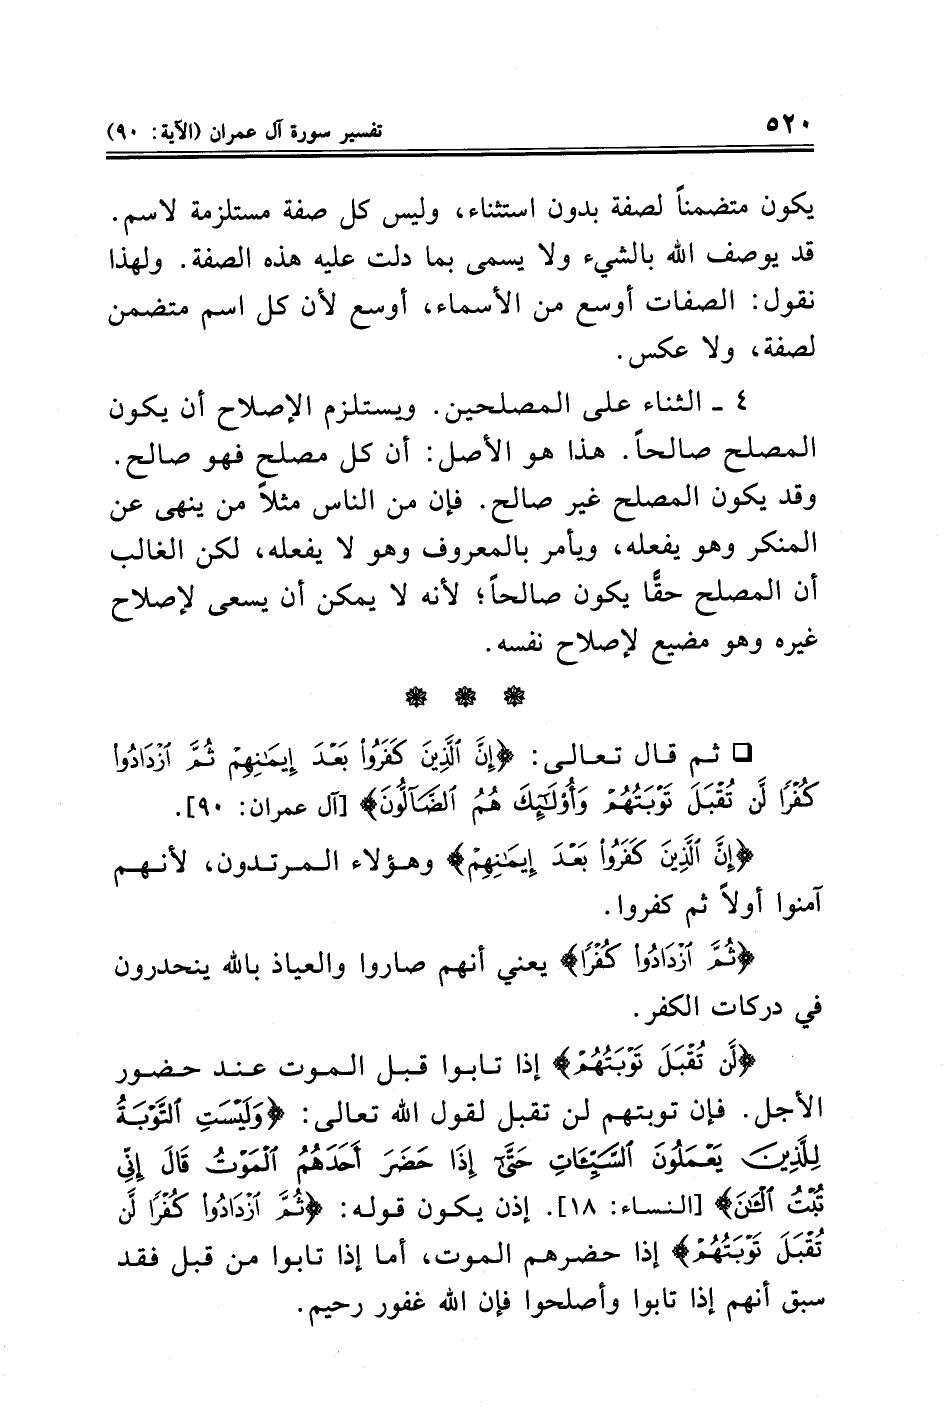 ٥٢٠ تفسير سورة آل عمران (الآية: ٩٠)
يكون متضمناً لصفة بدون استثناء، وليس كل صفة مستلزمة لاسم.
قد يوصف الله بالشيء ولا يسمى بما دلت عليه هذه الصفة. ولهذا
نقول: الصفات أوسع من الأسماء، أوسع لأن كل اسم متضمن
لصفة، ولا عكس.
٤ ـ الثناء على المصلحين. ويستلزم الإصلاح أن يكون
المصلح صالحاً. هذا هو الأصل: أن كل مصلح فهو صالح.
وقد يكون المصلح غير صالح. فإن من الناس مثلاً من ينهى عن
المنكر وهو يفعله، ويأمر بالمعروف وهو لا يفعله، لكن الغالب
أن المصلح حقًّا يكون صالحاً؛ لأنه لا يمكن أن يسعى لإصلاح
غيره وهو مضيع لإصلاح نفسه.
❁ ❁ ❁
❏ ثم قال تعالى: ﴿إِنَّ ٱلَّذِينَ كَفَرُواْ بَعْدَ إِيمَٰنِهِمْ ثُمَّ ٱزْدَادُواْ
كُفْرًا لَّن تُقْبَلَ تَوْبَتُهُمْ وَأُوْلَٰٓئِكَ هُمُ ٱلضَّآلُّونَ﴾ [آل عمران: ٩٠].
﴿إِنَّ ٱلَّذِينَ كَفَرُواْ بَعْدَ إِيمَٰنِهِمْ﴾ وهؤلاء المرتدون، لأنهم
آمنوا أولاً ثم كفروا.
﴿ثُمَّ ٱزْدَادُواْ كُفْرًا﴾ يعني أنهم صاروا والعياذ بالله ينحدرون
في دركات الكفر.
﴿لَّن تُقْبَلَ تَوْبَتُهُمْ﴾ إذا تابوا قبل الموت عند حضور
الأجل. فإن توبتهم لن تقبل لقول الله تعالى: ﴿وَلَيْسَتِ ٱلتَّوْبَةُ
لِلَّذِينَ يَعْمَلُونَ ٱلسَّيِّـَٔاتِ حَتَّىٰٓ إِذَا حَضَرَ أَحَدَهُمُ ٱلْمَوْتُ قَالَ إِنِّي
تُبْتُ ٱلْـَٰٔنَ﴾ [النساء: ١٨]. إذن يكون قوله: ﴿ثُمَّ ٱزْدَادُواْ كُفْرًا لَّن
تُقْبَلَ تَوْبَتُهُمْ﴾ إذا حضرهم الموت، أما إذا تابوا من قبل فقد
سبق أنهم إذا تابوا وأصلحوا فإن الله غفور رحيم.